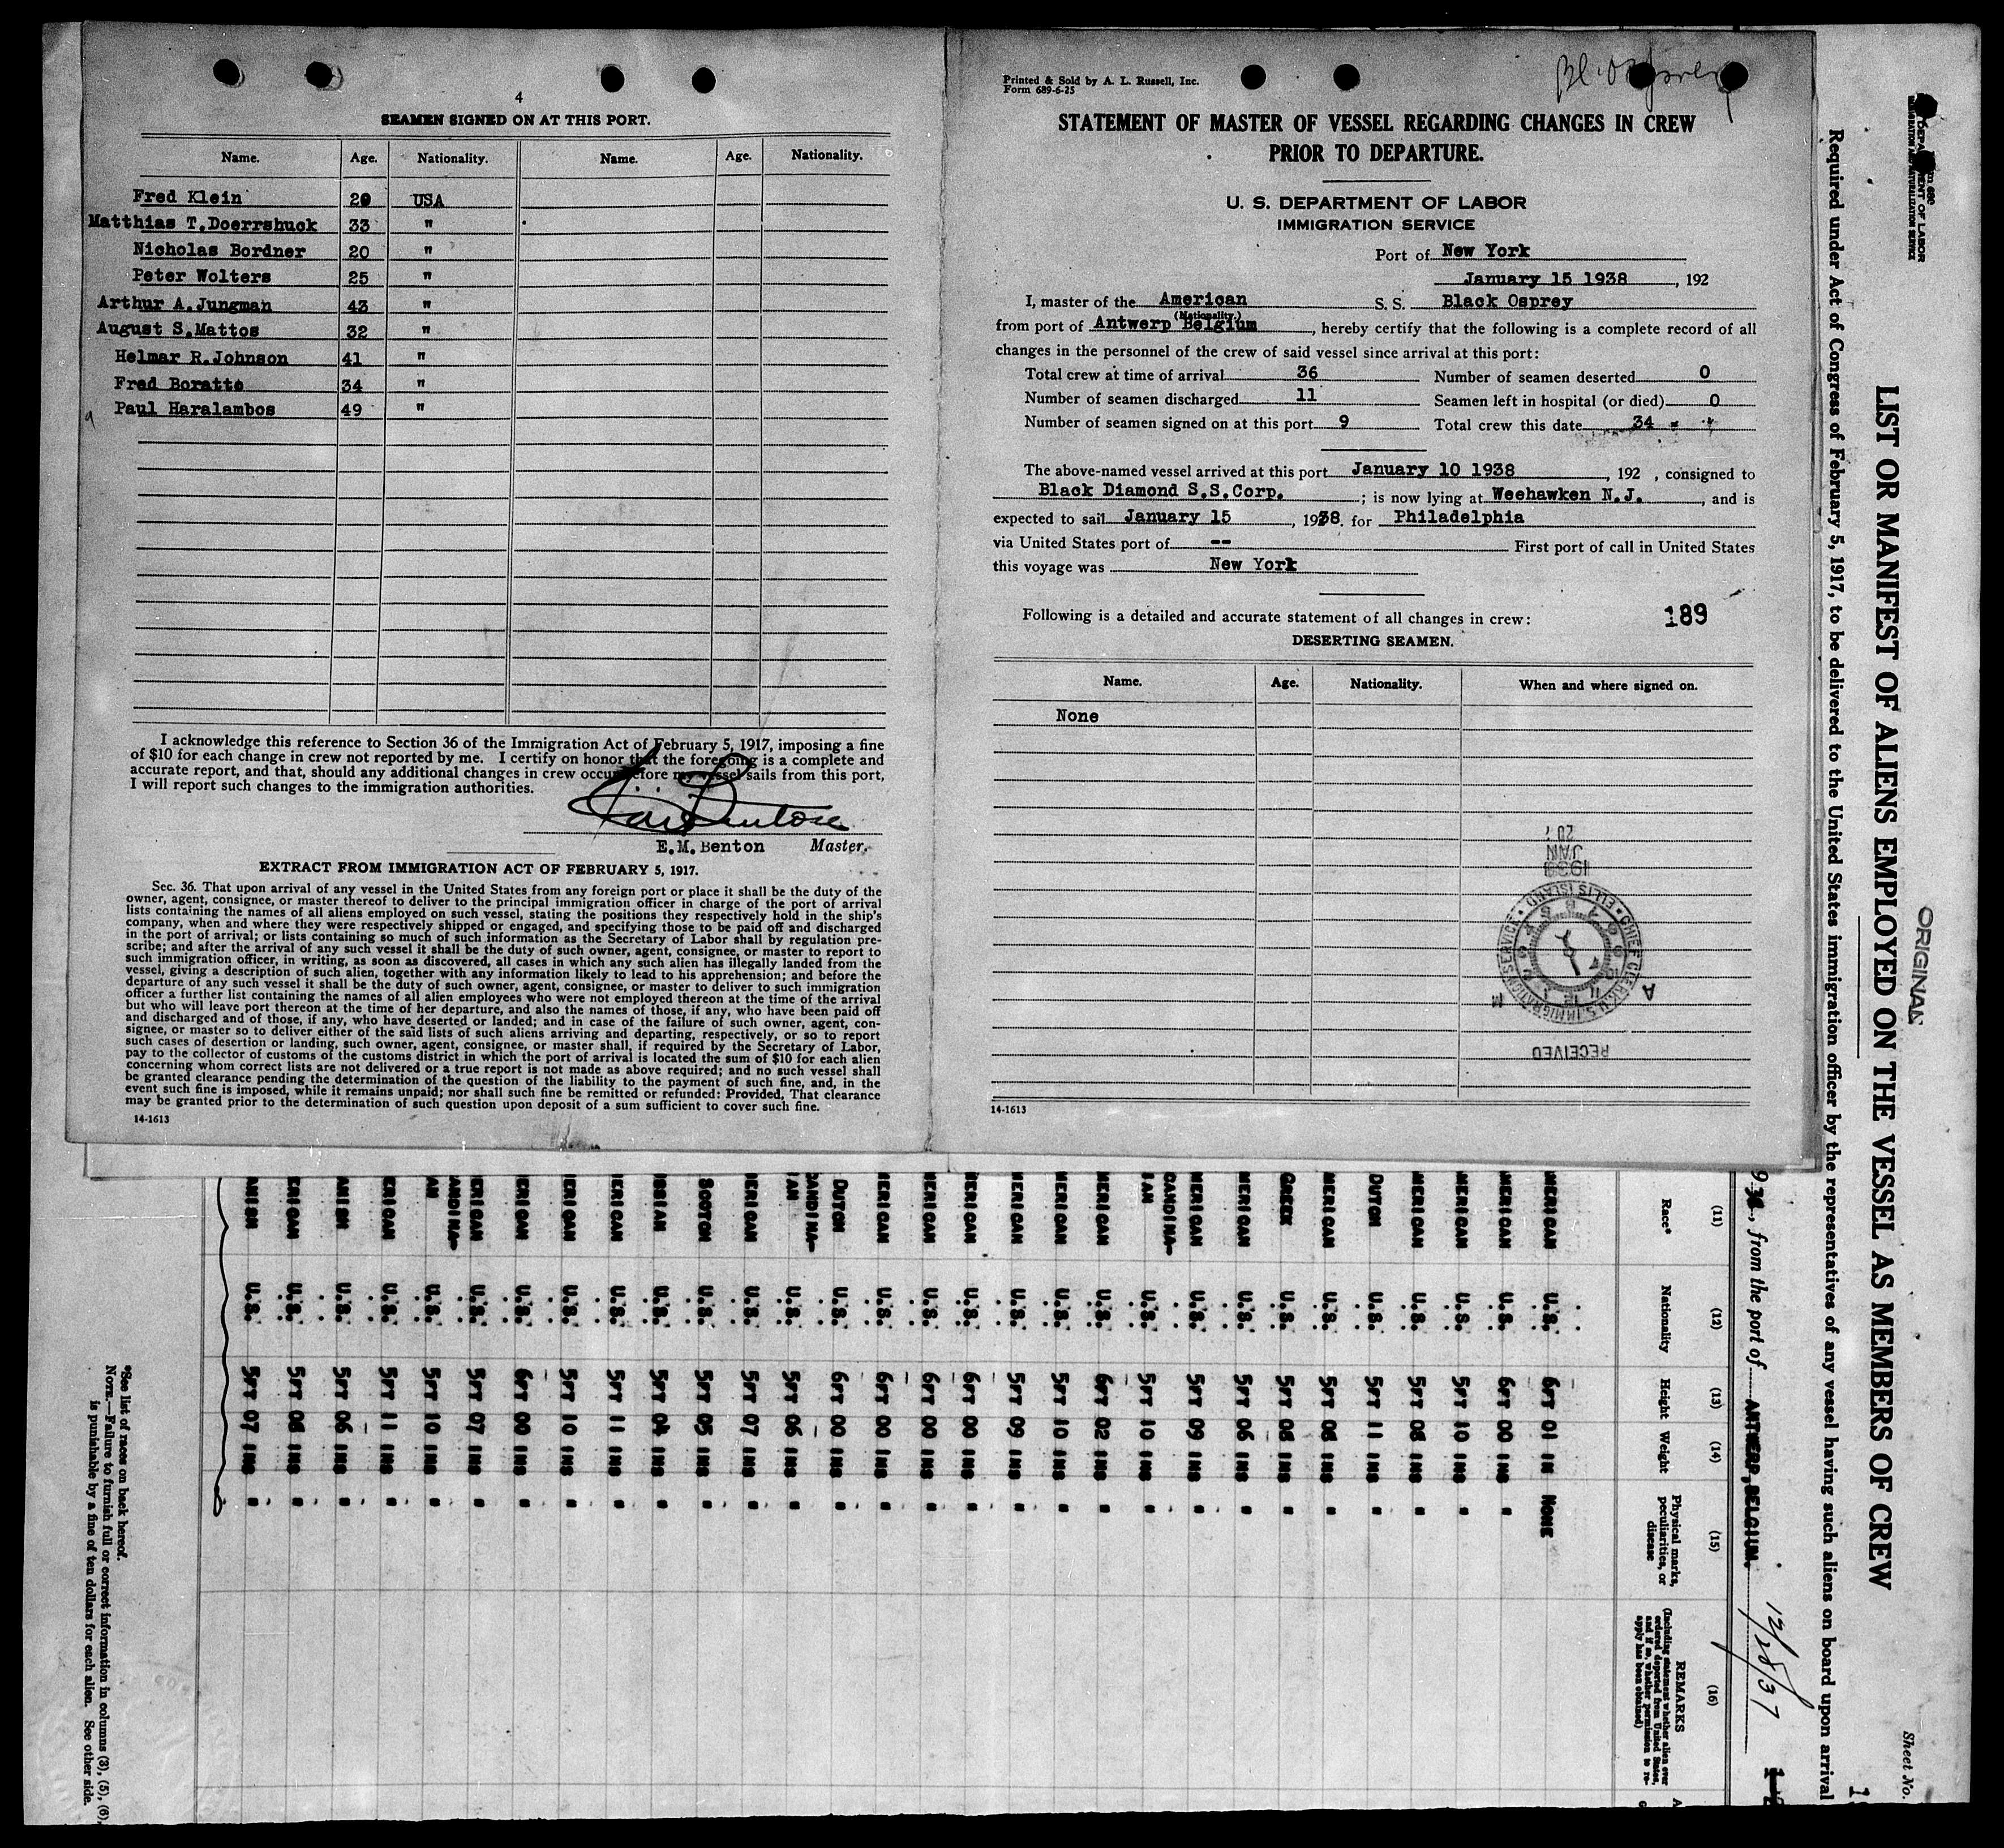 4
SEAMEN SIGNED ON AT THIS PORT.
Name. Age. Nationality. Name. Age. Nationality.
Fred Klein 20 USA
Matthias T.Doerrshuck 33 "
Nicholas Bordner 20 "
Peter Wolters 25 "
Arthur A.Jungman 43 "
August S.Mattos 32 "
Helmar R.Johnson 41 "
Fred Boratto 34 "
Paul Haralambos 49 "
9
I acknowledge this reference to Section 36 of the Immigration Act of February 5, 1917, imposing a fine
of $10 for each change in crew not reported by me. I certify on honor that the foregoing is a complete and
accurate report, and that, should any additional changes in crew occur before my vessel sails from this port,
I will report such changes to the immigration authorities.
E.M. Benton Master.
EXTRACT FROM IMMIGRATION ACT OF FEBRUARY 5, 1917.
Sec. 36. That upon arrival of any vessel in the United States from any foreign port or place it shall be the duty of the
owner, agent, consignee, or master thereof to deliver to the principal immigration officer in charge of the port of arrival
lists containing the names of all aliens employed on such vessel, stating the positions they respectively hold in the ship's
company, when and where they were respectively shipped or engaged, and specifying those to be paid off and discharged
in the port of arrival; or lists containing so much of such information as the Secretary of Labor shall by regulation pre-
scribe; and after the arrival of any such vessel it shall be the duty of such owner, agent, consignee, or master to report to
such immigration officer, in writing, as soon as discovered, all cases in which any such alien has illegally landed from the
vessel, giving a description of such alien, together with any information likely to lead to his apprehension; and before the
departure of any such vessel it shall be the duty of such owner, agent, consignee, or master to deliver to such immigration
officer a further list containing the names of all alien employees who were not employed thereon at the time of the arrival
but who will leave port thereon at the time of her departure, and also the names of those, if any, who have been paid off
and discharged and of those, if any, who have deserted or landed; and in case of the failure of such owner, agent, con-
signee, or master so to deliver either of the said lists of such aliens arriving and departing, respectively, or so to report
such cases of desertion or landing, such owner, agent, consignee, or master shall, if required by the Secretary of Labor,
pay to the collector of customs of the customs district in which the port of arrival is located the sum of $10 for each alien
concerning whom correct lists are not delivered or a true report is not made as above required; and no such vessel shall
be granted clearance pending the determination of the question of the liability to the payment of such fine, and, in the
event such fine is imposed, while it remains unpaid; nor shall such fine be remitted or refunded: Provided, That clearance
may be granted prior to the determination of such question upon deposit of a sum sufficient to cover such fine.
14-1613
Printed & Sold by A. L. Russell, Inc.
Form 689-6-25
Bl. Osprey
STATEMENT OF MASTER OF VESSEL REGARDING CHANGES IN CREW
PRIOR TO DEPARTURE.
U. S. DEPARTMENT OF LABOR
IMMIGRATION SERVICE
Port of New York
January 15 1938, 192
I, master of the American S. S. Black Osprey
(Nationality.)
from port of Antwerp Belgium, hereby certify that the following is a complete record of all
changes in the personnel of the crew of said vessel since arrival at this port:
Total crew at time of arrival 36 Number of seamen deserted 0
Number of seamen discharged 11 Seamen left in hospital (or died) 0
Number of seamen signed on at this port 9 Total crew this date 34
The above-named vessel arrived at this port January 10 1938, 192 , consigned to
Black Diamond S.S.Corp. ; is now lying at Weehawken N.J., and is
expected to sail January 15, 1938. for Philadelphia
via United States port of -- First port of call in United States
this voyage was New York
Following is a detailed and accurate statement of all changes in crew: 189
DESERTING SEAMEN.
Name. Age. Nationality. When and where signed on.
None
1938
JAN
20
CHIEF CLERK U.S. IMMIGRATION SERVICE • ELLIS ISLAND
A M
RECEIVED
14-1613
DEPARTMENT OF LABOR
IMMIGRATION AND NATURALIZATION SERVICE
ORIGINAL
Sheet No.
LIST OR MANIFEST OF ALIENS EMPLOYED ON THE VESSEL AS MEMBERS OF CREW
Required under Act of Congress of February 5, 1917, to be delivered to the United States immigration officer by the representatives of any vessel having such aliens on board upon arrival
, from the port of ANTWERP, BELGIUM. 12/28/37
(11) (12) (13) (14) (15) (16)
Race* Nationality Height Weight Physical marks, peculiarities, or disease REMARKS
(Including statement whether alien ever ordered deported from United States, and if so, whether permission to re-apply has been obtained)
MERICAN U.S. 6FT 01 IN NONE
MERICAN U.S. 6FT 00 INS "
MERICAN U.S. 5FT 10 INS "
MERICAN U.S. 5FT 08 INS "
DUTCH U.S. 5FT 11 INS "
MERICAN U.S. 5FT 08 INS "
GREEK U.S. 5FT 08 INS "
MERICAN U.S. 5FT 06 INS "
MERICAN U.S. 5FT 09 INS "
CANDINA-
IAN U.S. 5FT 10 INS "
MERICAN U.S. 6FT 02 INS "
MERICAN U.S. 5FT 10 INS "
MERICAN U.S. 5FT 09 INS "
MERICAN U.S. 6FT 00 INS "
MERICAN U.S. 6FT 00 INS "
MERICAN U.S. 6FT 00 INS "
DUTCH U.S. 6FT 00 INS "
CANDINA-
IAN U.S. 5FT 06 INS "
MERICAN U.S. 5FT 07 INS "
SCOTCH U.S. 5FT 05 INS "
SSIAN U.S. 5FT 04 INS "
ERICAN U.S. 5FT 11 INS "
MERICAN U.S. 5FT 10 INS "
ERICAN U.S. 6FT 00 INS "
ERICAN U.S. 5FT 07 INS "
ANDINA-
AN U.S. 5FT 10 INS "
ERICAN U.S. 5FT 11 INS "
ANISH U.S. 5FT 06 INS "
ERICAN U.S. 5FT 08 INS "
ANISH U.S. 5FT 07 INS "
*See list of races on back hereof.
NOTE.—Failure to furnish full or correct information in columns (3), (5), (6),
is punishable by a fine of ten dollars for each alien. See other side.